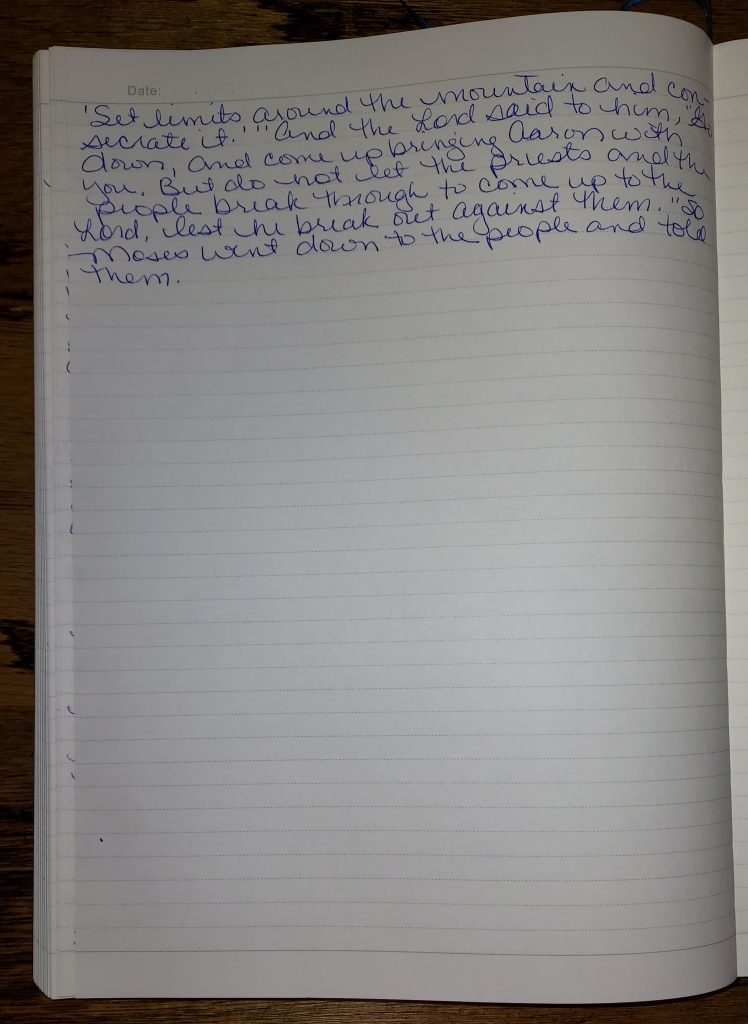 Date:
'Set limits around the mountain and con-
secrate it.'" And the Lord said to him, "Go
down, and come up bringing Aaron with
you. But do not let the priests and the
people break through to come up to the
Lord, lest he break out against them." So
Moses went down to the people and told
them.